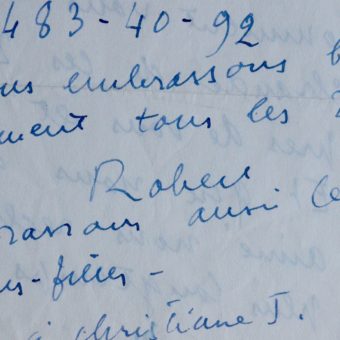 483-40-92
us embrassons b
ment tous les
Robert
rassons aussi le
s-filles-
à christiane J.